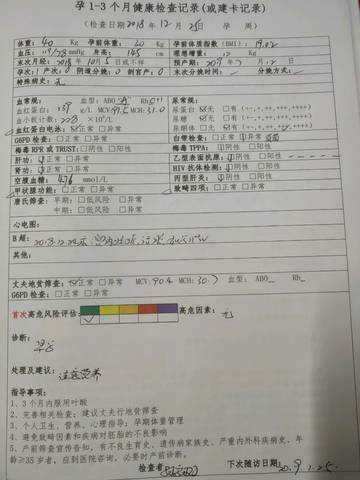 孕 1-3 个月健康检查记录(或建卡记录)
(检查日期 2018 年 12 月 25 日 孕 周)
体重: 40 Kg 孕前体重: 40 Kg 孕前体质指数(BMI): 19.02
mmHg 身高: 145 cm 理想增重: 12 Kg
末次月经: 2018 年 10 月 5 日或不祥 预产期: 2019 年 7 月 12 日
孕次:1 产次:0 阴道分娩:0 剖宫产:0 末次分娩时间: 分娩方式:
特殊病史: 无
血常规: 血型: ABO "A" Rh
血红蛋白: g/L MCV: 91.5 MCH: 31.0
血小板计数: 228 ×10⁹/L
血红蛋白电泳: ☑正常 □异常
G6PD 检查: □正常 □异常
梅毒 RPR 或 TRUST: □阴性 □阳性
肝功: ☑正常 □异常
肾功: ☑正常 □异常
空腹血糖: 4.76 mmol/L
甲状腺功能: □正常 □异常
唐氏筛查: 早期: □低风险 □异常
中期: □低风险 □异常
尿常规:
尿蛋白 ☑无 □有 (+-,+,++,+++,++++)
尿糖 ☑无 □有 (+-,+,++,+++,++++)
尿酮体 ☑无 □有 (+-,+,++,+++,++++)
白带检查: ☑正常 □异常
梅毒 TPPA: ☑阴性 □阳性
乙型表面抗原: ☑阴性 □阳性
HIV 抗体检测: ☑阴性 □阳性
丙型肝炎: ☑阴性 □阳性
致畸四项: □正常 □异常
心电图:
B 超: 2018.12.24
其他:
丈夫地贫筛查: ☑正常 □异常 MCV: 90.4 MCH: 30.7 血型: ABO__ Rh__
G6PD 检查: □正常 □异常
首次高危风险评估: 高危因素: 无
诊断:
早孕
处理及建议: 注意营养
指导事项:
1、3 个月内服用叶酸
2、完善相关检查; 建议丈夫行地贫筛查
3、个人卫生、营养、心理指导; 孕期体重管理
4、避免致畸因素和疾病对胚胎的不良影响
5、产前筛查宣传告知, 有不良生育史、遗传病家族史、严重内外科疾病史、年
龄≥35 岁者, 应到医院咨询, 必要时产前诊断。
检查者: 下次随访日期: 2019.1.25